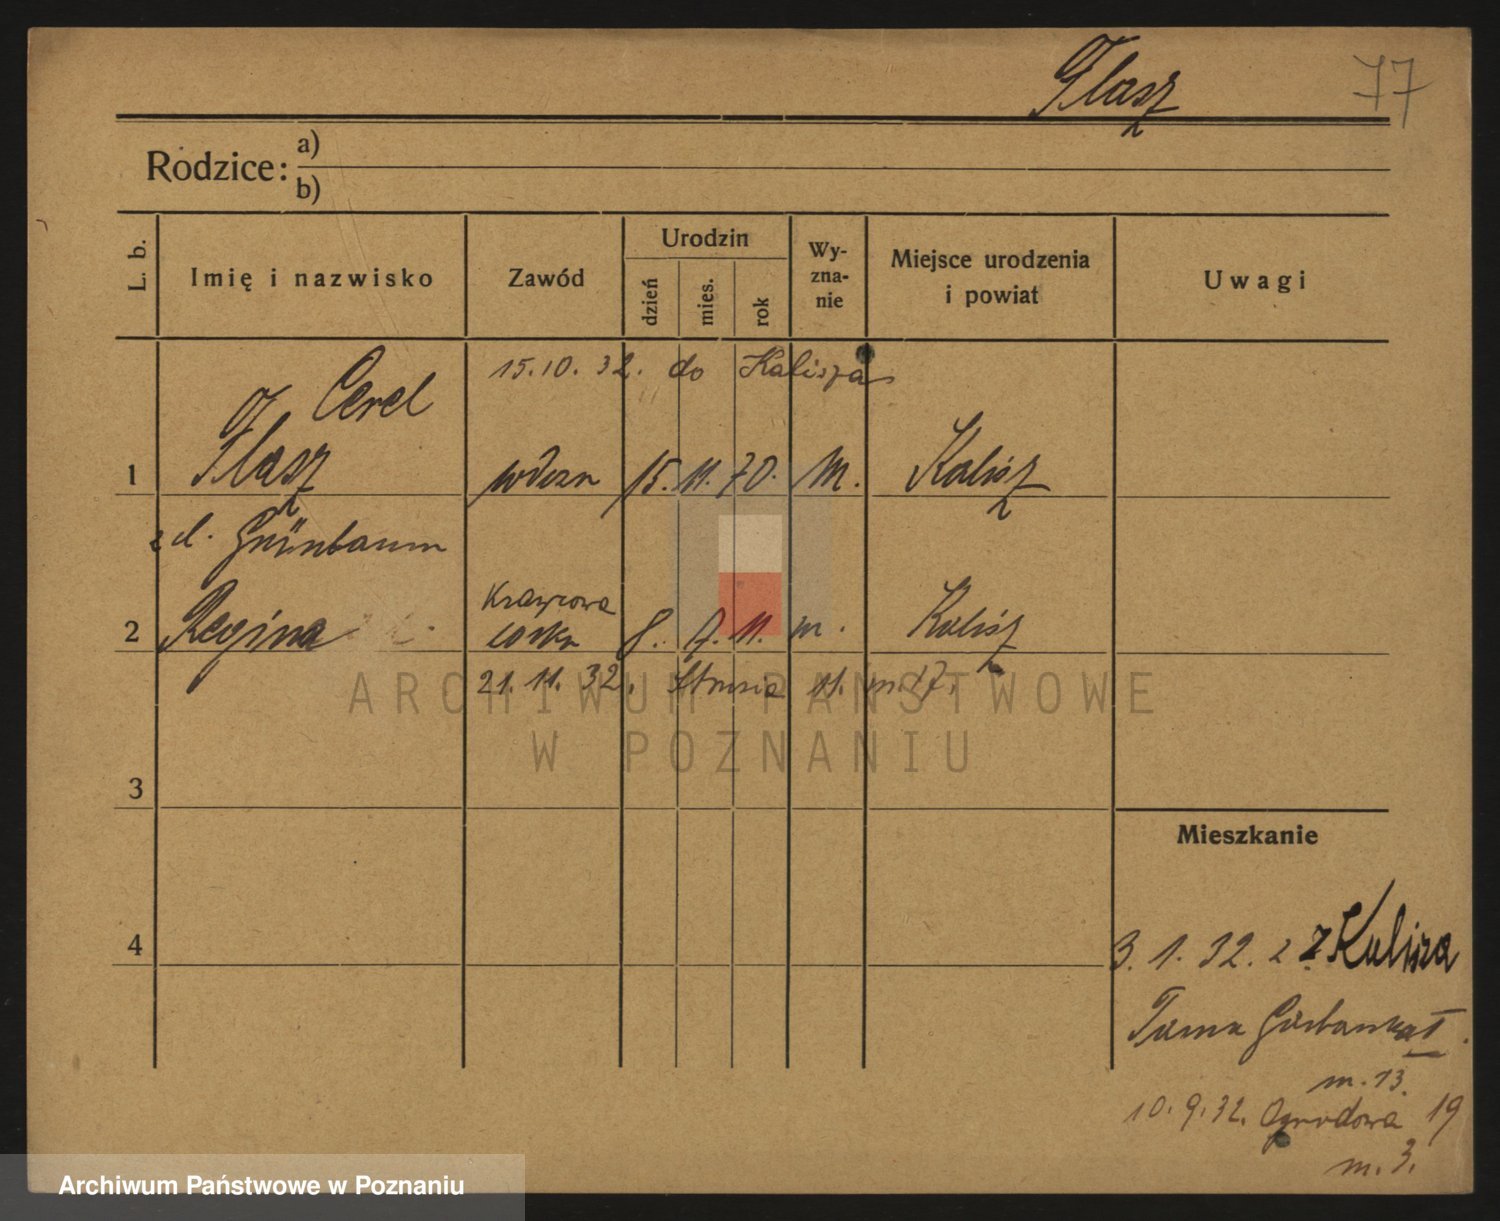 Flasz
77
Rodzice: a)
b)
L. b.
Imię i nazwisko
Zawód
Urodzin
dzień
mies.
rok
Wy-
zna-
nie
Miejsce urodzenia
i powiat
Uwagi
15.10.32. do Kalisza
Cerel
1 Flasz wdowa 15. 11. 70. M. Kalisz
zd. Grünbaum
Krawcowa
2 Regina córka 8. 7. 11. m. Kalisz
21. 11. 32. Strusia 11. m. 17.
ARCHIWUM PAŃSTWOWE
W POZNANIU
3
Mieszkanie
4
3. 1. 32. z Kalisza
m. 13.
10. 9. 32. Ogrodowa 19
m. 3.
Archiwum Państwowe w Poznaniu